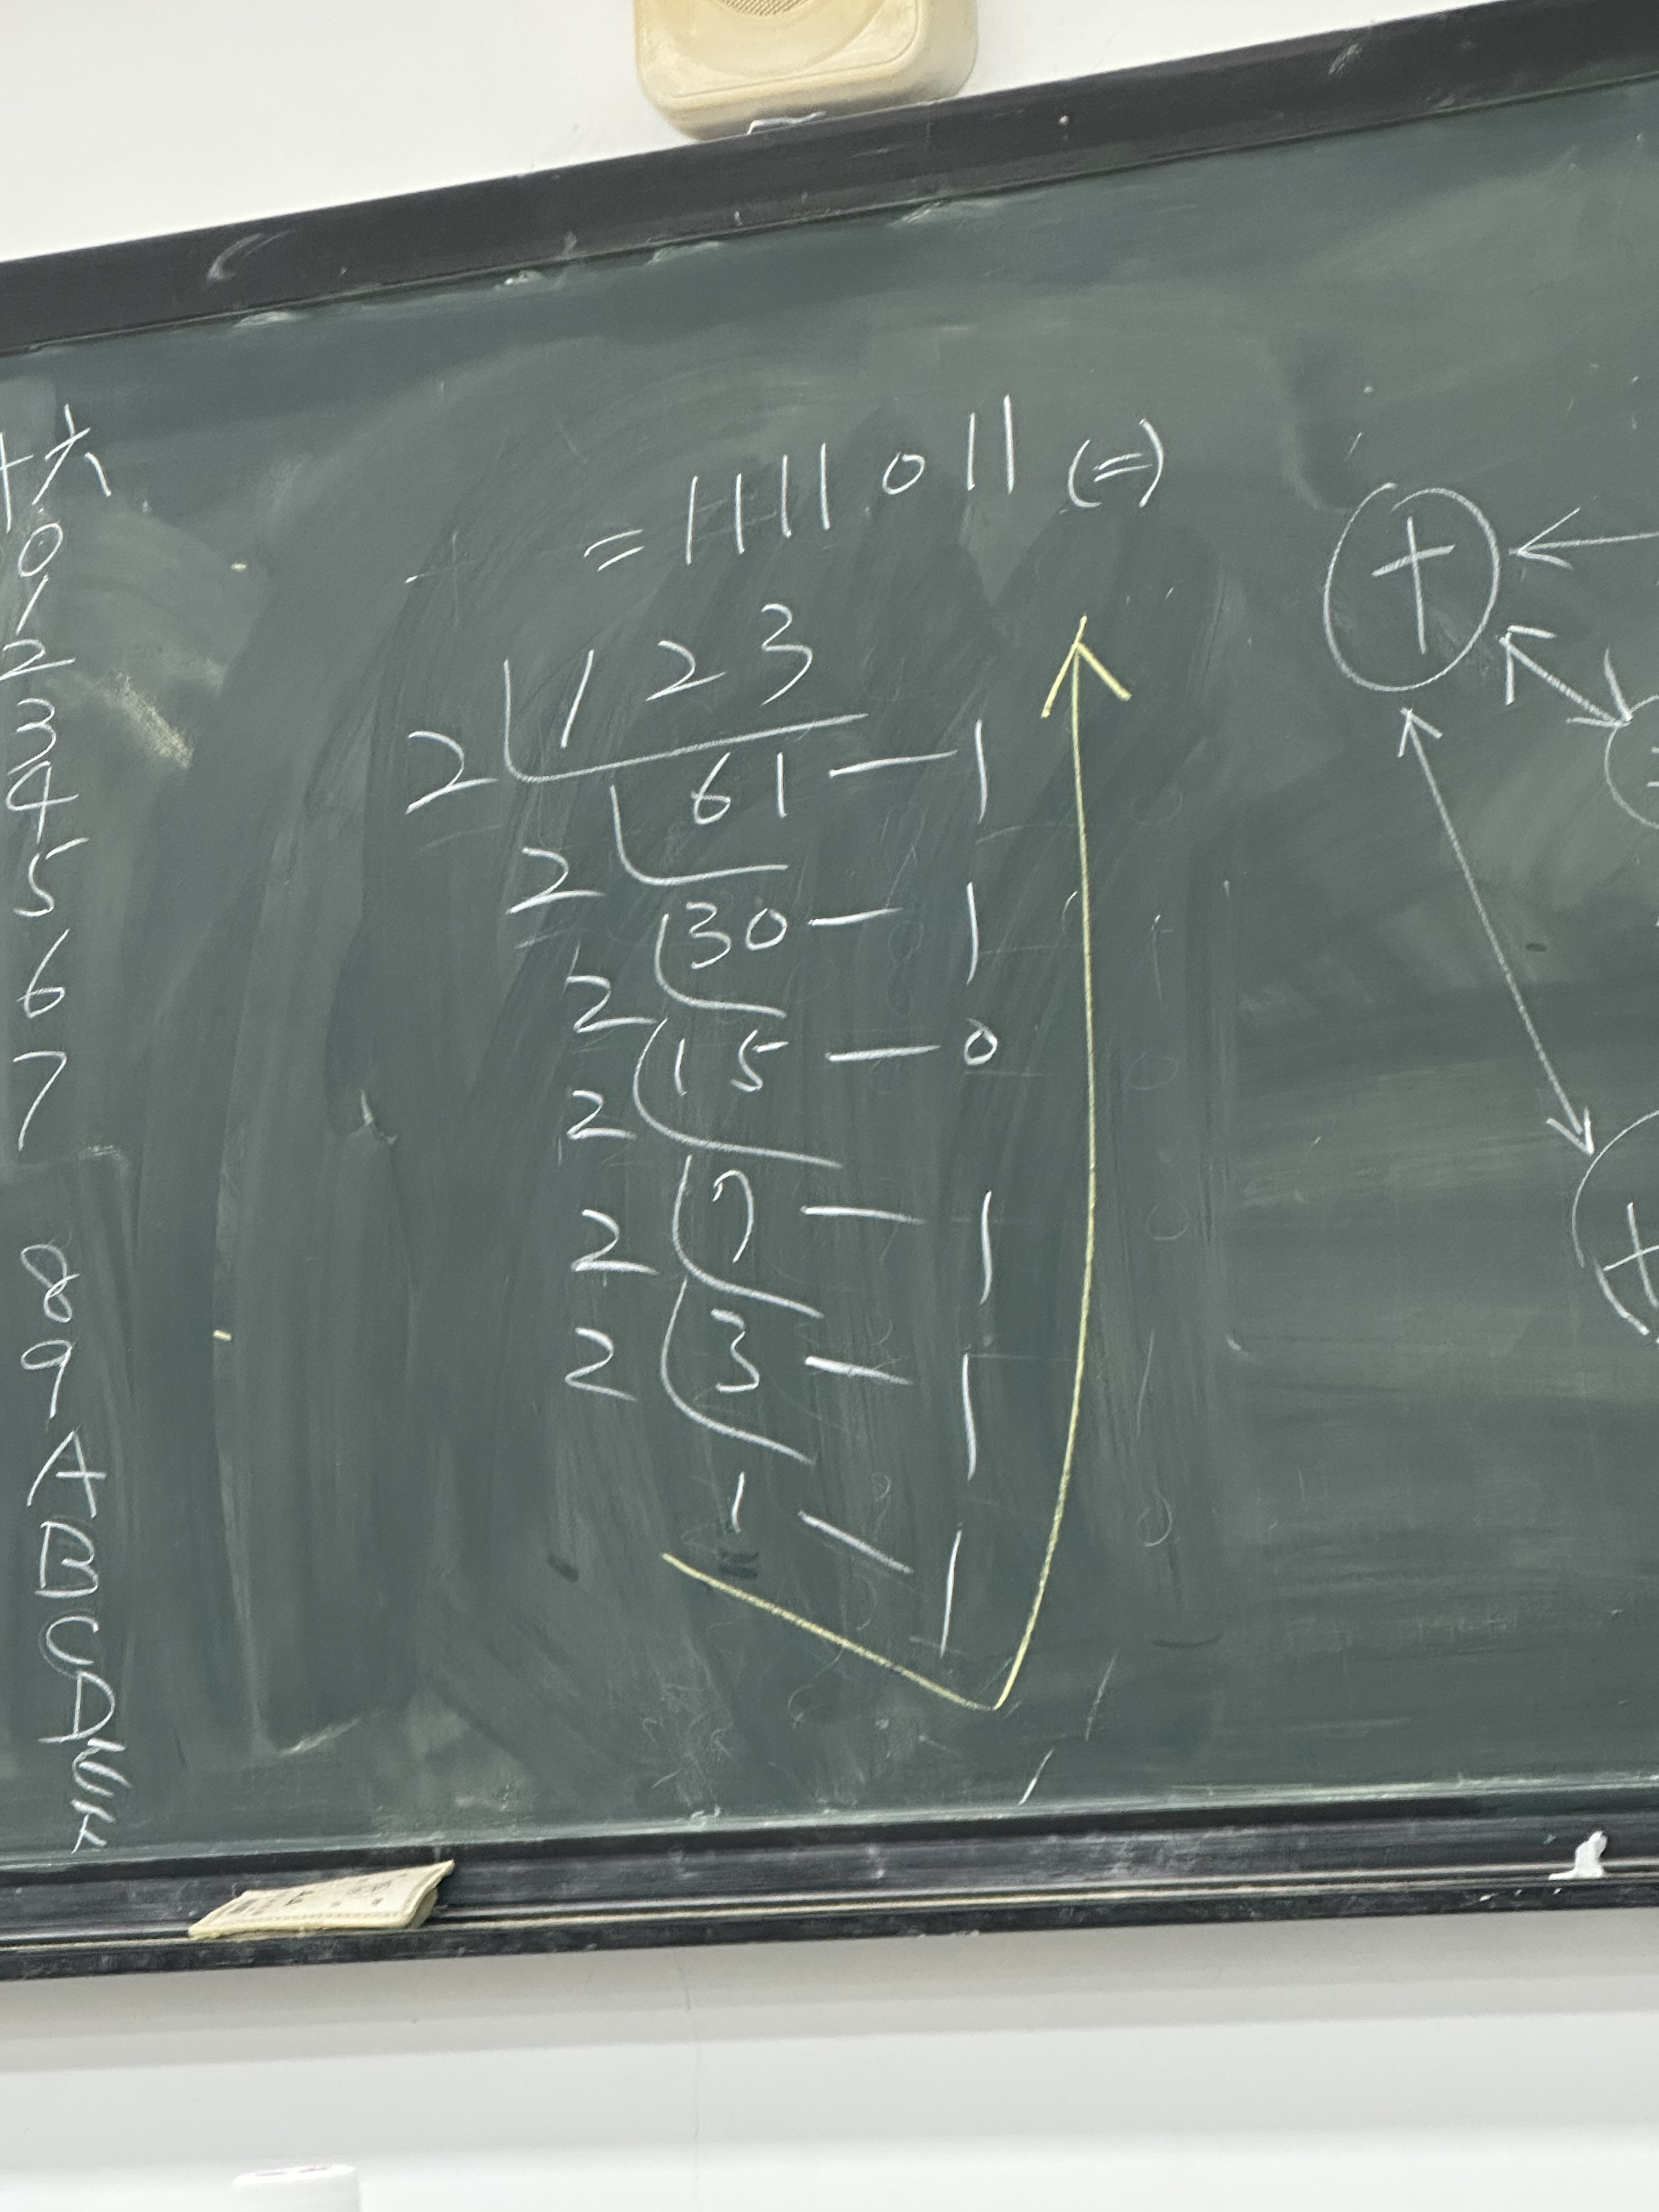 十六
0
1
2
3
4
5
6
7
8
9
A
B
C
D
E
F
= 1111011 (二)
2 123
2 61 — 1
2 30 — 1
2 15 — 0
2 7 — 1
2 3 — 1
1 — 1
十
十